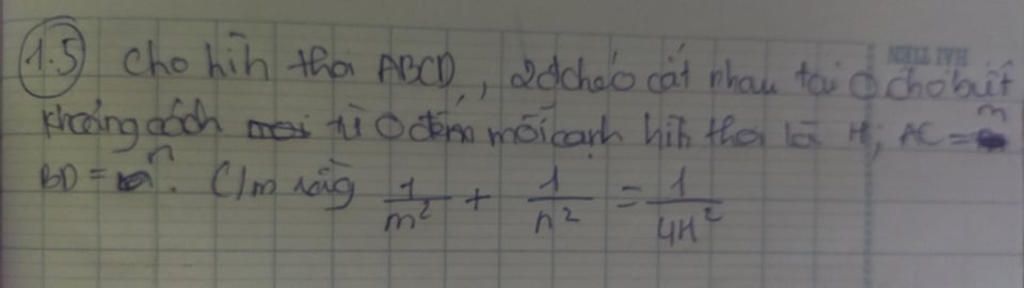 1.5 Cho hìh thoi ABCD, 2đchéo cắt nhau tại O cho biết
khoảng cách từ O đến mỗi cạnh hìh thoi là H; AC = m
BD = n. C/m rằng 1/m² + 1/n² = 1/4H²